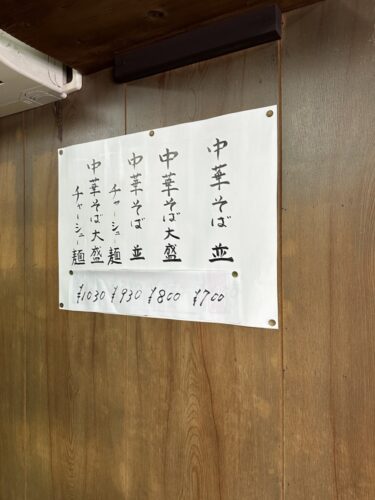 中華そば 並
中華そば 大盛
中華そば 並
チャーシュー麺
中華そば 大盛
チャーシュー麺
¥1030 ¥930 ¥800 ¥700